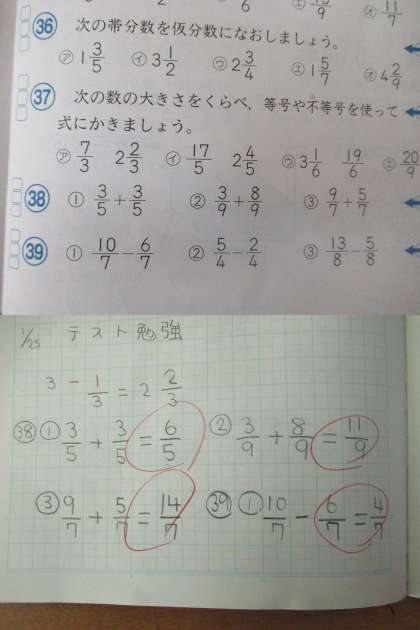 6 ㋓ 9 ㋔ 11/7
36 次の帯分数を仮分数になおしましょう。
㋐ 1 3/5 ㋑ 3 1/2 ㋒ 2 3/4 ㋓ 1 5/7 ㋔ 4 2/9
37 次の数の大きさをくらべ，等号や不等号を使って
式にかきましょう。
㋐ 7/3 2 2/3 ㋑ 17/5 2 4/5 ㋒ 3 1/6 19/6 ㋓ 20/9
38 ① 3/5 + 3/5 ② 3/9 + 8/9 ③ 9/7 + 5/7
39 ① 10/7 − 6/7 ② 5/4 − 2/4 ③ 13/8 − 5/8
1/25 テスト勉強
3 − 1/3 = 2 2/3
㊳ ① 3/5 + 3/5 = 6/5 ② 3/9 + 8/9 = 11/9
③ 9/7 + 5/7 = 14/7 ㊴ ① 10/7 − 6/7 = 4/7